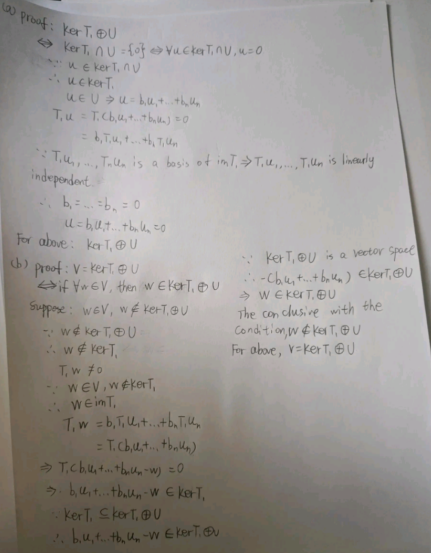 (a) proof: kerT₁⊕U
⇔ kerT₁∩U={0} ⇔ ∀u∈kerT₁∩U, u=0
∵ u∈kerT₁∩U
∴ u∈kerT₁
u∈U ⇒ u=b₁u₁+...+bₙuₙ
T₁u = T₁(b₁u₁+...+bₙuₙ)=0
= b₁T₁u₁+...+bₙT₁uₙ
∵ T₁u₁,...,T₁uₙ is a basis of imT₁ ⇒ T₁u₁,...,T₁uₙ is linearly
independent.
∴ b₁=...=bₙ=0
u=b₁u₁+...+bₙuₙ=0
For above: kerT₁⊕U
(b) proof: V=kerT₁⊕U
⇔ if ∀w∈V, then w∈kerT₁⊕U
Suppose: w∈V, w∉kerT₁⊕U
∵ w∉kerT₁⊕U
∴ w∉kerT₁
T₁w≠0
∵ w∈V, w∉kerT₁
∴ w∈imT₁
T₁w = b₁T₁u₁+...+bₙT₁uₙ
= T₁(b₁u₁+...+bₙuₙ)
⇒ T₁(b₁u₁+...+bₙuₙ-w)=0
⇒ b₁u₁+...+bₙuₙ-w∈kerT₁
∵ kerT₁⊆kerT₁⊕U
∴ b₁u₁+...+bₙuₙ-w∈kerT₁⊕U
∵ kerT₁⊕U is a vector space
∴ -(b₁u₁+...+bₙuₙ)∈kerT₁⊕U
⇒ w∈kerT₁⊕U
The conclusive with the
condition, w∉kerT₁⊕U
For above, V=kerT₁⊕U